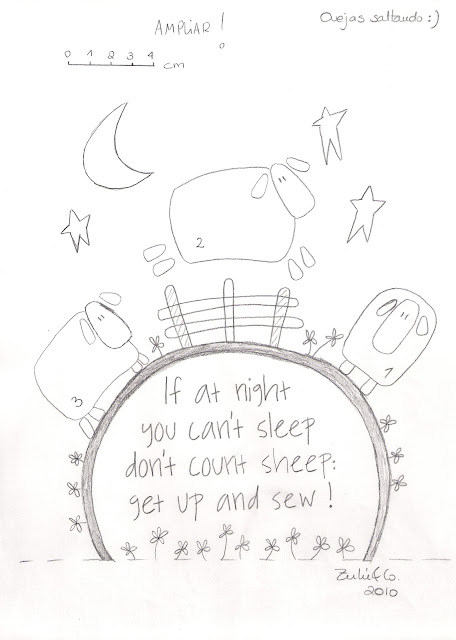 AMPLIAR!
Ovejas saltando :)
0 1 2 3 4 cm
2
3
1
If at night
you can't sleep
don't count sheep:
get up and sew!
2010